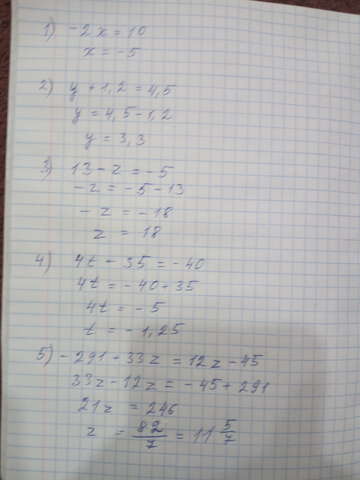 1) -2x = 10
x = -5
2) y + 1,2 = 4,5
y = 4,5 - 1,2
y = 3,3
3) 13 - z = -5
-z = -5 - 13
-z = -18
z = 18
4) 4t - 35 = -40
4t = -40 + 35
4t = -5
t = -1,25
5) -291 + 33z = 12z - 45
33z - 12z = -45 + 291
21z = 246
z = 82/7 = 11 5/7